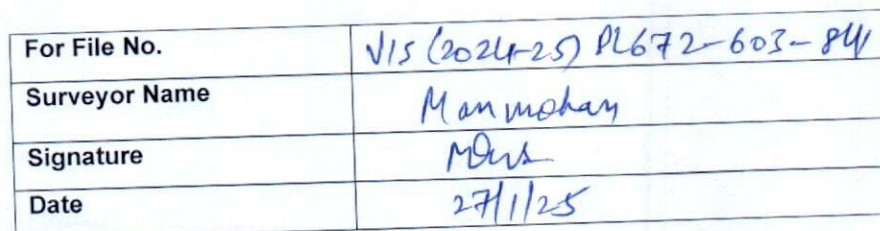 For File No. VIS (2024-25) PL672-603-841
Surveyor Name Manmohan
Signature
Date 27/1/25